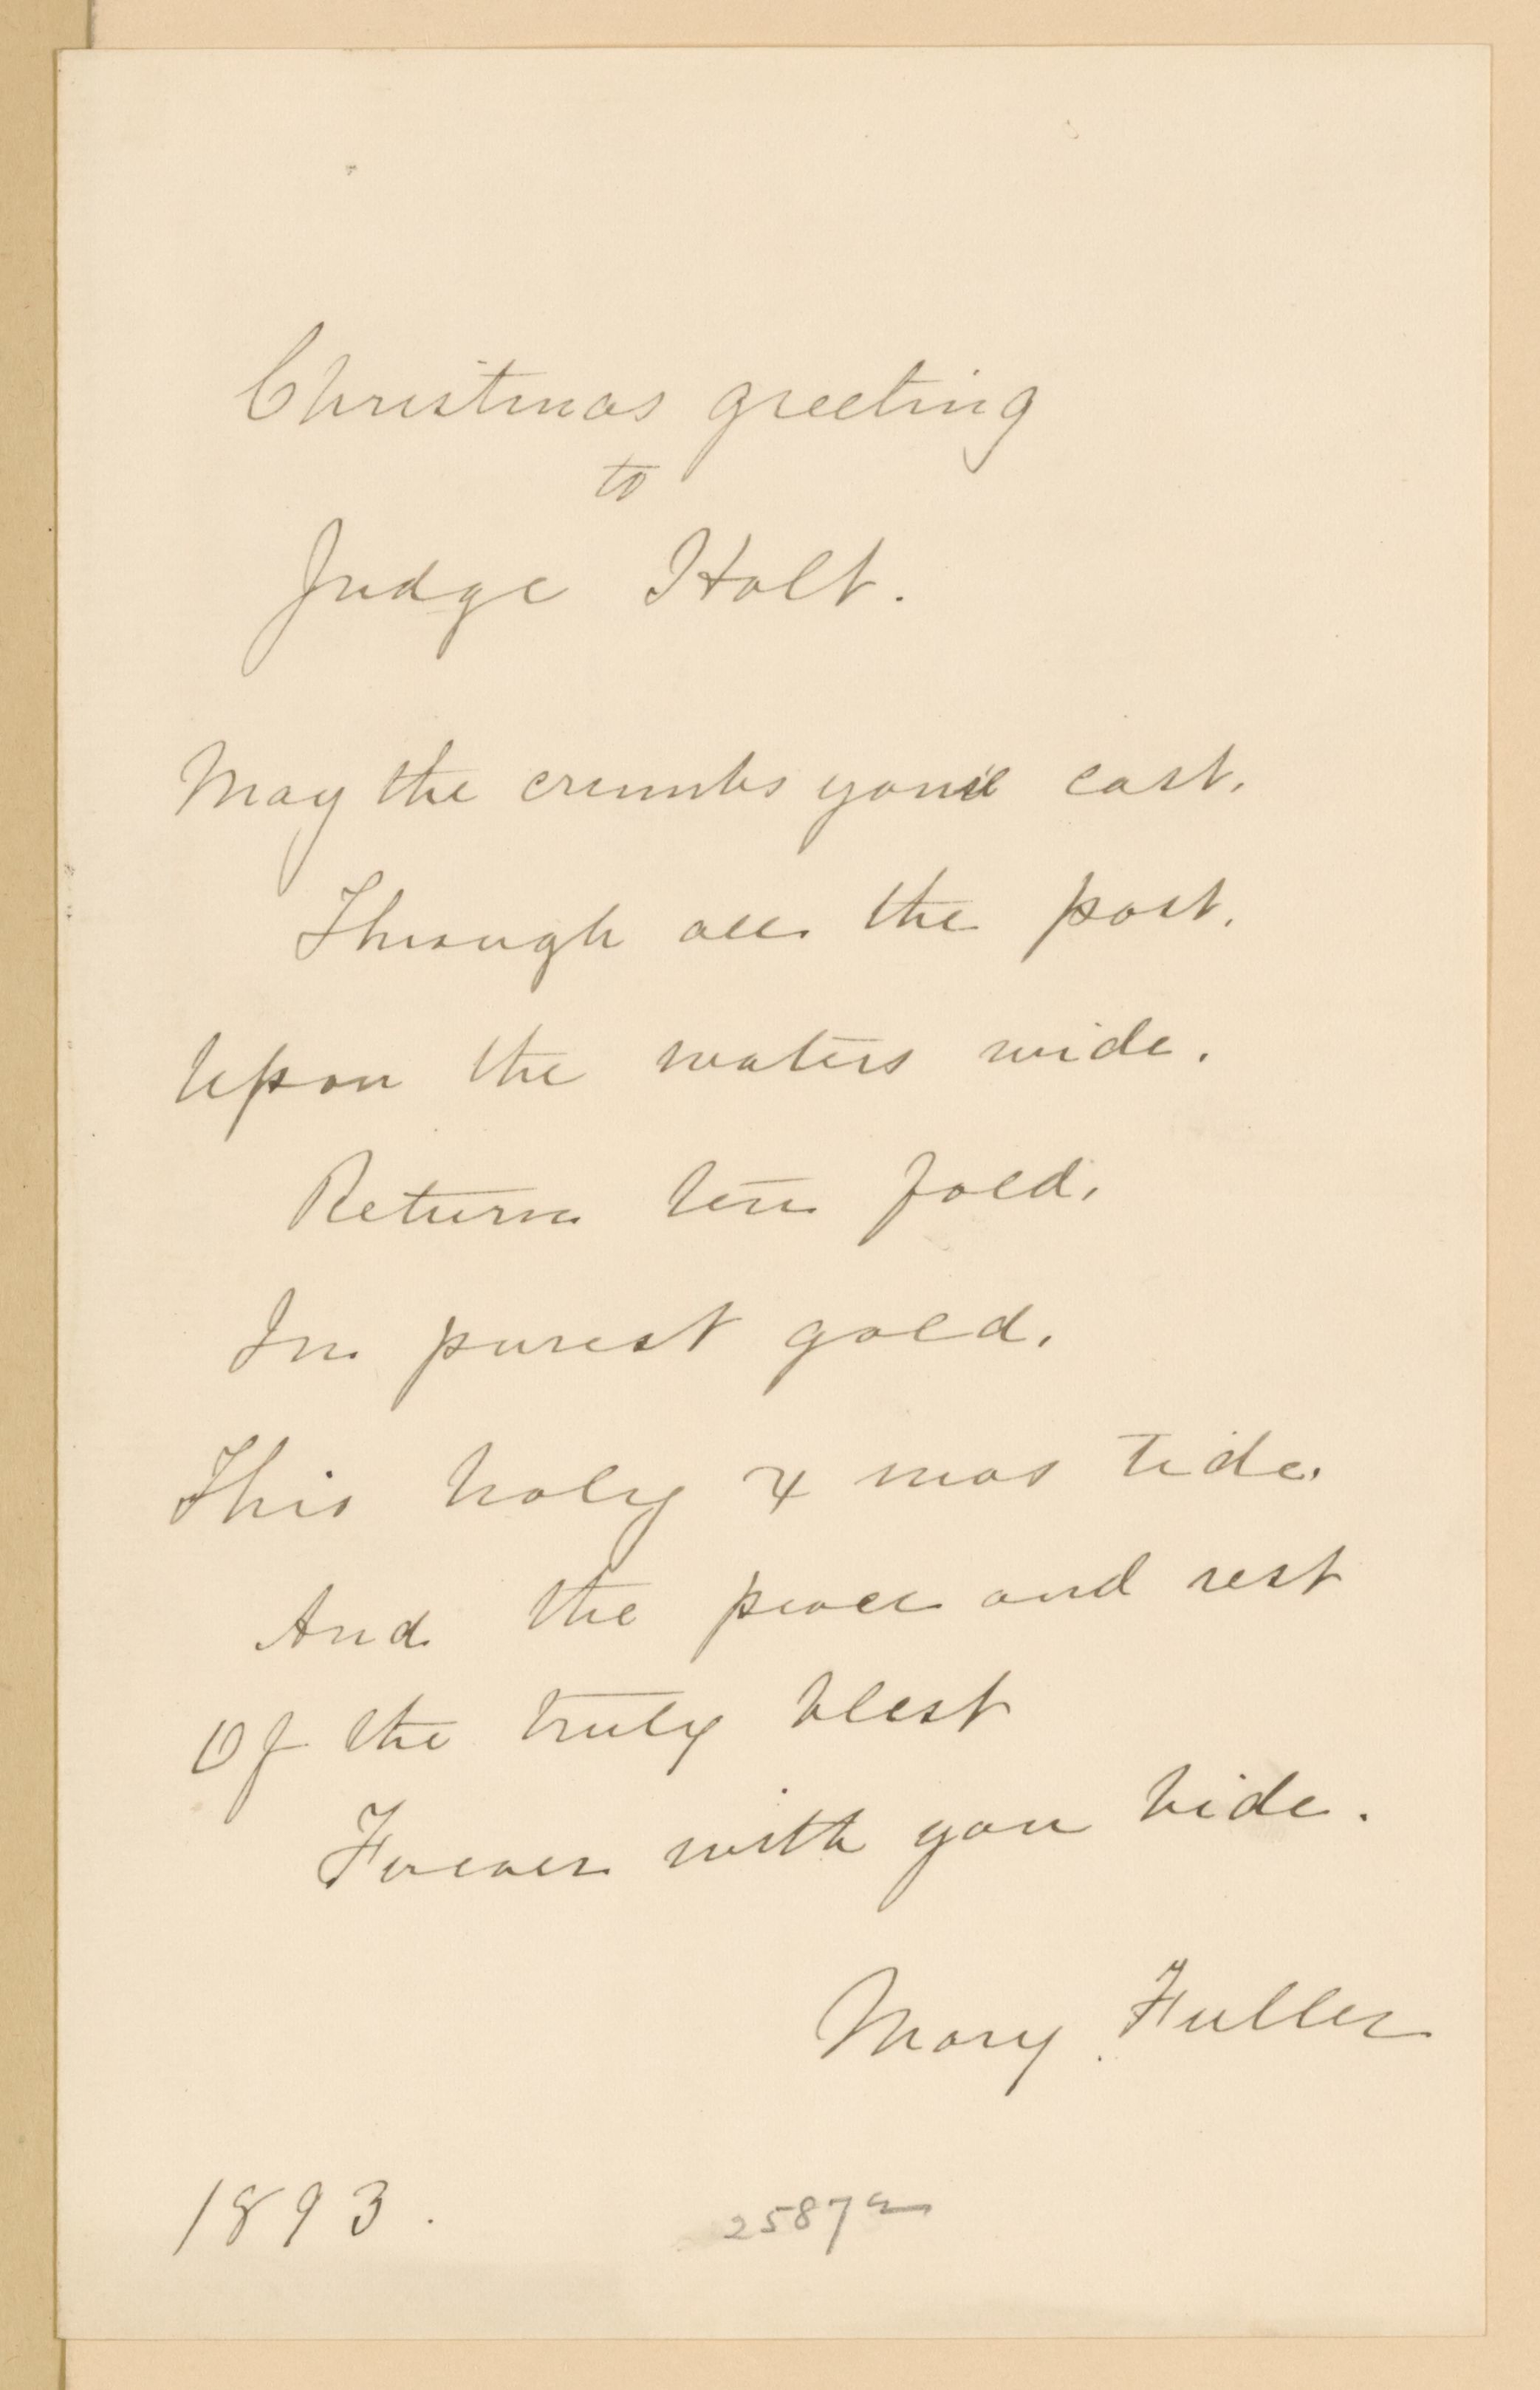 Christmas greeting
to
Judge Holt.
May the crumbs you've cast,
Through all the past,
Upon the waters wide.
Return ten fold,
In purest gold,
This holy X mas tide.
And the peace and rest
Of the truly blest
Forever with you bide.
Mary Fuller
1893.
2587a